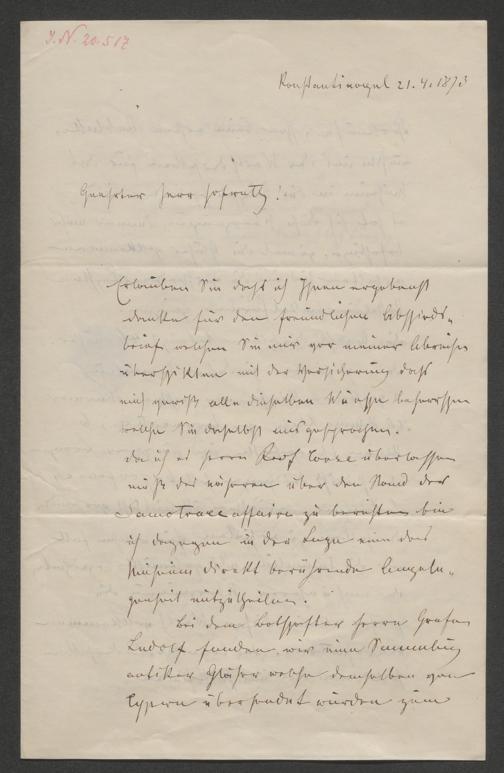 J.N. 20.517
Konstantinopel 21.4.1873
Geehrter Herr Hofrath!
Erlauben Sie daß ich Ihnen ergebenst
danke für den freundlichen Abschieds-
brief welchen Sie mir vor meiner Abreise
überschikten mit der Versicherung daß
mich gewiß alle dieselben Wünsche beherrschen
welche Sie daselbst ausgesprochen.
Da ich es Herrn Prof Conze überlassen
muß des näheren über den Stand der
Samotraceaffaire zu berichten bin
ich dagegen in der Lage eine das
Museum direkt berührende Angele-
genheit mitzutheilen.
Bei dem Botschafter Herrn Grafen
Ludolf fanden wir eine Sammlung
antiker Gläser welche demselben von
Cypern übersendet wurden zum